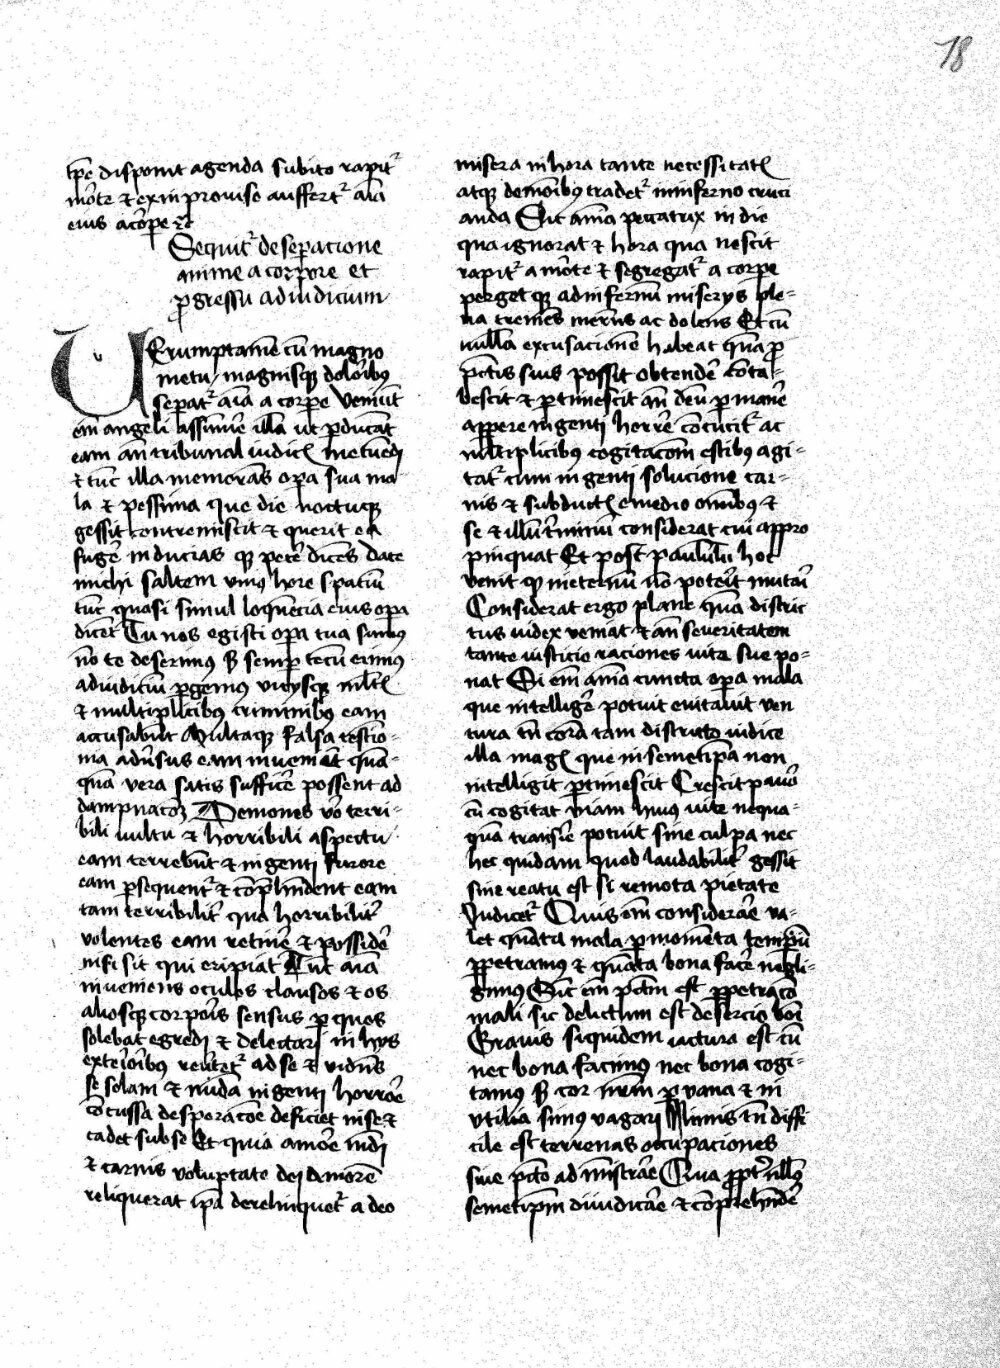 18
tp̄e disponit agenda subito rapit᷑
mo᷑te & ex inprouiso auffert᷑ aīa
eius a co᷑pe ꝛc̄
Sequit᷑ de seperacione
anime a corpore et
ꝓgressu ad iudicium
Uerumptamē cū magno
metu magnisqꝫ dolo᷑ibꝰ
seꝑat᷑ aīa a corpe Veniūt
em̄ angeli assum̄e illā ut ꝑducāt
eam an̄ tribunal iudicꝭ metuēdi
& tūc illa memorās oꝑa sua ma
la & pessima que die noctuqꝫ
gessit contremiscit & querit ea
fuge᷑ inducias qꝫ pete᷑ dicēs date
michi saltem vniꝰ hore spatiū
tūc quasi simul loquēcia eius oꝑa
dicēt Tu nos egisti oꝑa tua sumꝰ
nō te deserimꝰ sꝫ semꝑ tecū erimꝰ
ad iudiciū ꝑgemꝰ vicijsqꝫ ml̄tꝭ
& multiplicibꝰ criminibꝰ eam
accusabūt Multaqꝫ falsa testīo-
nia adu᷑sus eam inuenīēt quā-
quā vera satis suffice᷑ possent ad
dampnacōꝫ Demones vo᷑ terri-
bili uultu & horribili aspectu
eam terrebūt & ingenti furore
eam ꝑsequent᷑ & cōp̄hndent eam
tam terribilit᷑ quā horribilit᷑
volentes eam retine᷑ & posside᷑
nisi sit qui eripiat Tūc aīa
inueniens oculos clausos & os
aliosqꝫ corpo᷑is sensus ꝑ quos
solebat egredi & delectari in hijs
exterio᷑ibꝰ reu᷑tet᷑ ad se & vidēs
se solam & nūda ingenti horrore᷑
cōcussa desꝑacōe deficiet in se &
cadet sub se Et quia amo᷑e mūdi
& carnis voluptate dei amorē
reliquerat ip̄a derelinquet᷑ a deo
misera in hora tante necessitatꝭ
atqꝫ demōibꝰ tradet᷑ in inferno cruci
anda Sic aīma peccatrix in die
qua ignorat & hora qua nescit
rapit᷑ a mo᷑te & segregat᷑ a corpe
pergetqꝫ ad infernū miserijs ple-
na tremēs merēs ac dolens Et cū
nullā excusacionē habeat quā ꝓ
pctīs suis possit obtende᷑ cōta-
bescit & ꝑtimescit an̄ deū ꝑ mane᷑
appere ingenti horro᷑e cōcutit᷑ ac
multiplicibꝰ cogitacōm estibꝰ agi-
tat᷑ cum ingenti solucione car-
nis & subductꝭ e medio omibꝰ &
se & illū t᷑minū considerat cui appro
pinquat Et post paululū hoc
venit qꝫ in eternū nō poterīt mutari
Considerat ergo plane quā distric
tus iudex veniat & an̄ seueritatem
tante iusticie raciones uite sue po-
nat Si em̄ aīma cuncta oꝑa mala
que intellige᷑ potuit euitauit ven
tura tn̄ corā tam districto iudice
illa magꝭ que in semetip̄a non
intelligit ꝑtimescit Crescit pauo᷑
cū cogitat viam huiꝰ uite nequa-
quā transire᷑ potuit sine culpa nec
hec quidam quod laudabilit᷑ gessit
sine reatu est si remota pietate
Iudicet᷑ Quis em̄ considerāe va-
let quāta mala ꝑ momēta temporū
ꝑpetramus & quāta bona face᷑ negli-
gimꝰ Sic em̄ pctm est ꝑpetracō
mali sic delictum est desercio boni
Grauis siquidem iactura est cū
nec bona facimꝰ nec bona cogi-
tamus sꝫ cor nr̄m ꝑ vana & in
vtilia simus vagari Nimis tn̄ diffi
cile est terrenas occupaciones
sine pctō administrāe Quā ꝓpt᷑ nullꝰ
semetip̄m diiudicāe & cōprehende᷑